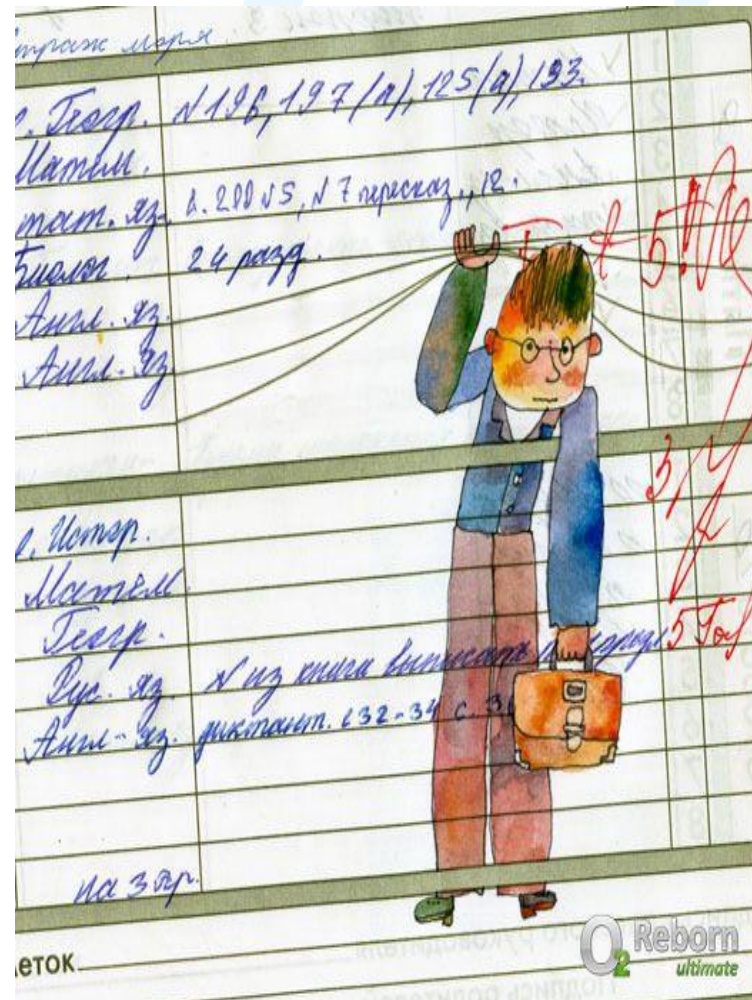 моря.
Геогр. N 196, 197 (л), 125 (д), 193.
Матем.
тат. яз. с. 200 N5, N7 пересказ, 12.
Биолог. 24 разд.
Англ. яз. 5
Англ. яз.
Истор. 3
Матем.
Геогр.
Рус. яз. N из книги выписать 5
Англ. яз. диктант. с 32-34 с. 3
на 3 тр.
еток
O2 Reborn
ultimate